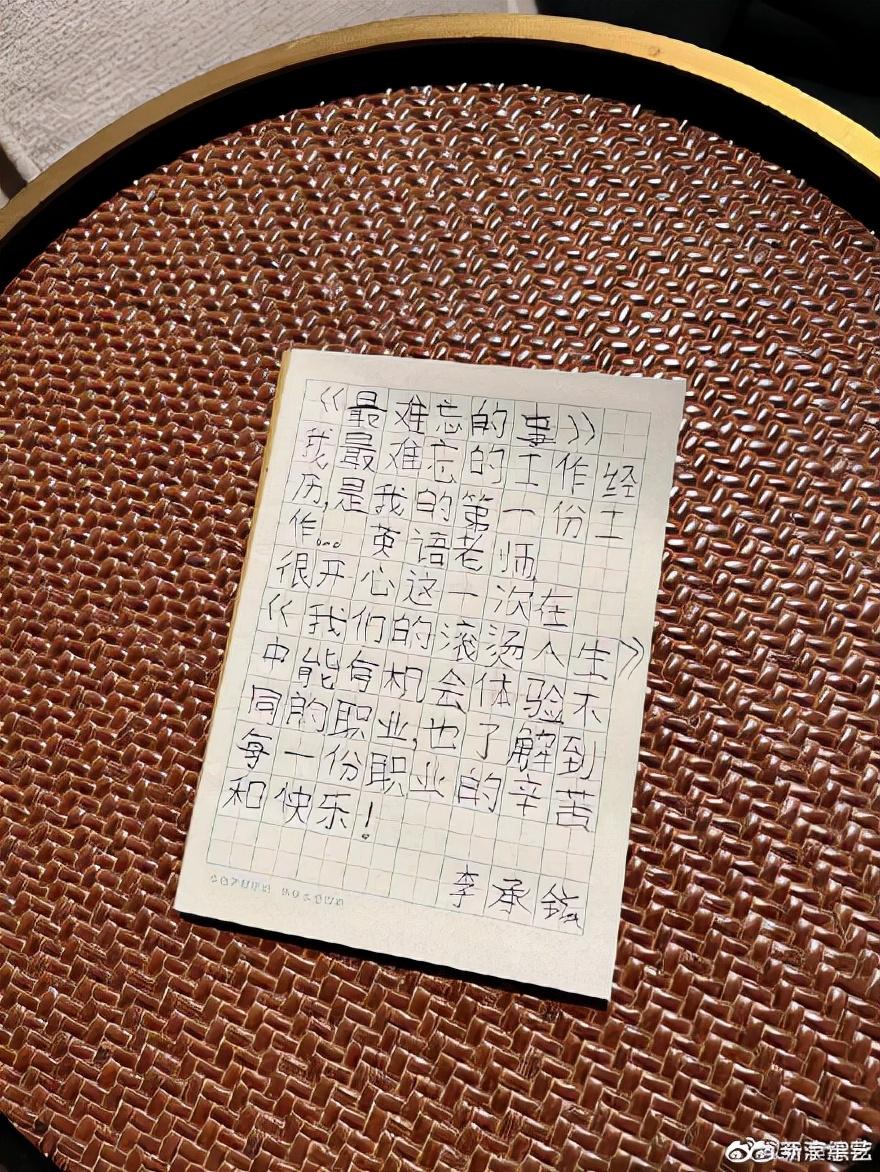 《最难忘的事》
我最难忘的工作经
历,是我的第一份工
作。。。英语老师
很开心这一次在
《我们的滚烫人生》
中能有机会体验不
同的职业,也了解到
每一份职业的辛苦
和快乐!
李承铉